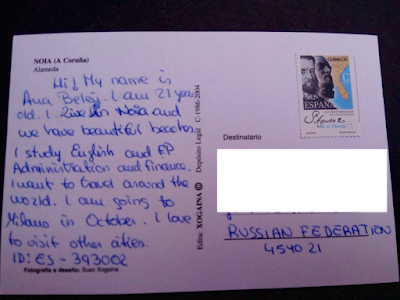 NOIA (A Coruña)
Alameda
Hi! My name is
Ana Belén. I am 21 years
old. I live in Noia and
we have beautiful beaches.
I study English and FP
Administration and Finance.
I want to travel around the
world. I am going to
Milano in October. I love
to visit other cities.
ID: ES - 393002
Fotografía e deseño: Suso Xogaina
Edita: XOGAINA © Depósito Legal: C-1986-2004
CORREOS
ESPAÑA
Destinatario
RUSSIAN FEDERATION
454021